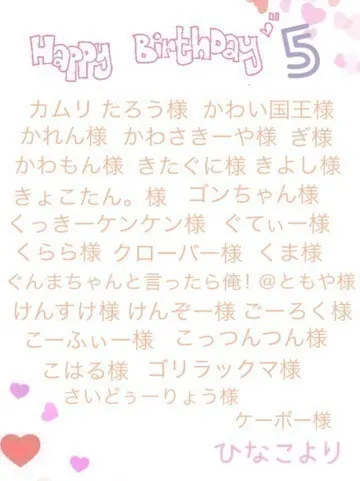 Happy Birthday 5
カムリ たろう様 かわい国王様
かれん様 かわさきーや様 ぎ様
かわもん様 きたぐに様 きよし様
きょこたん。様 ゴンちゃん様
くっきーケンケン様 ぐてぃー様
くらら様 クローバー様 くま様
ぐんまちゃんと言ったら俺！@ともや様
けんすけ様 けんぞー様 ごーろく様
こーふぃー様 こっつんつん様
こはる様 ゴリラックマ様
さいどぅーりょう様
ケーボー様
ひなこより